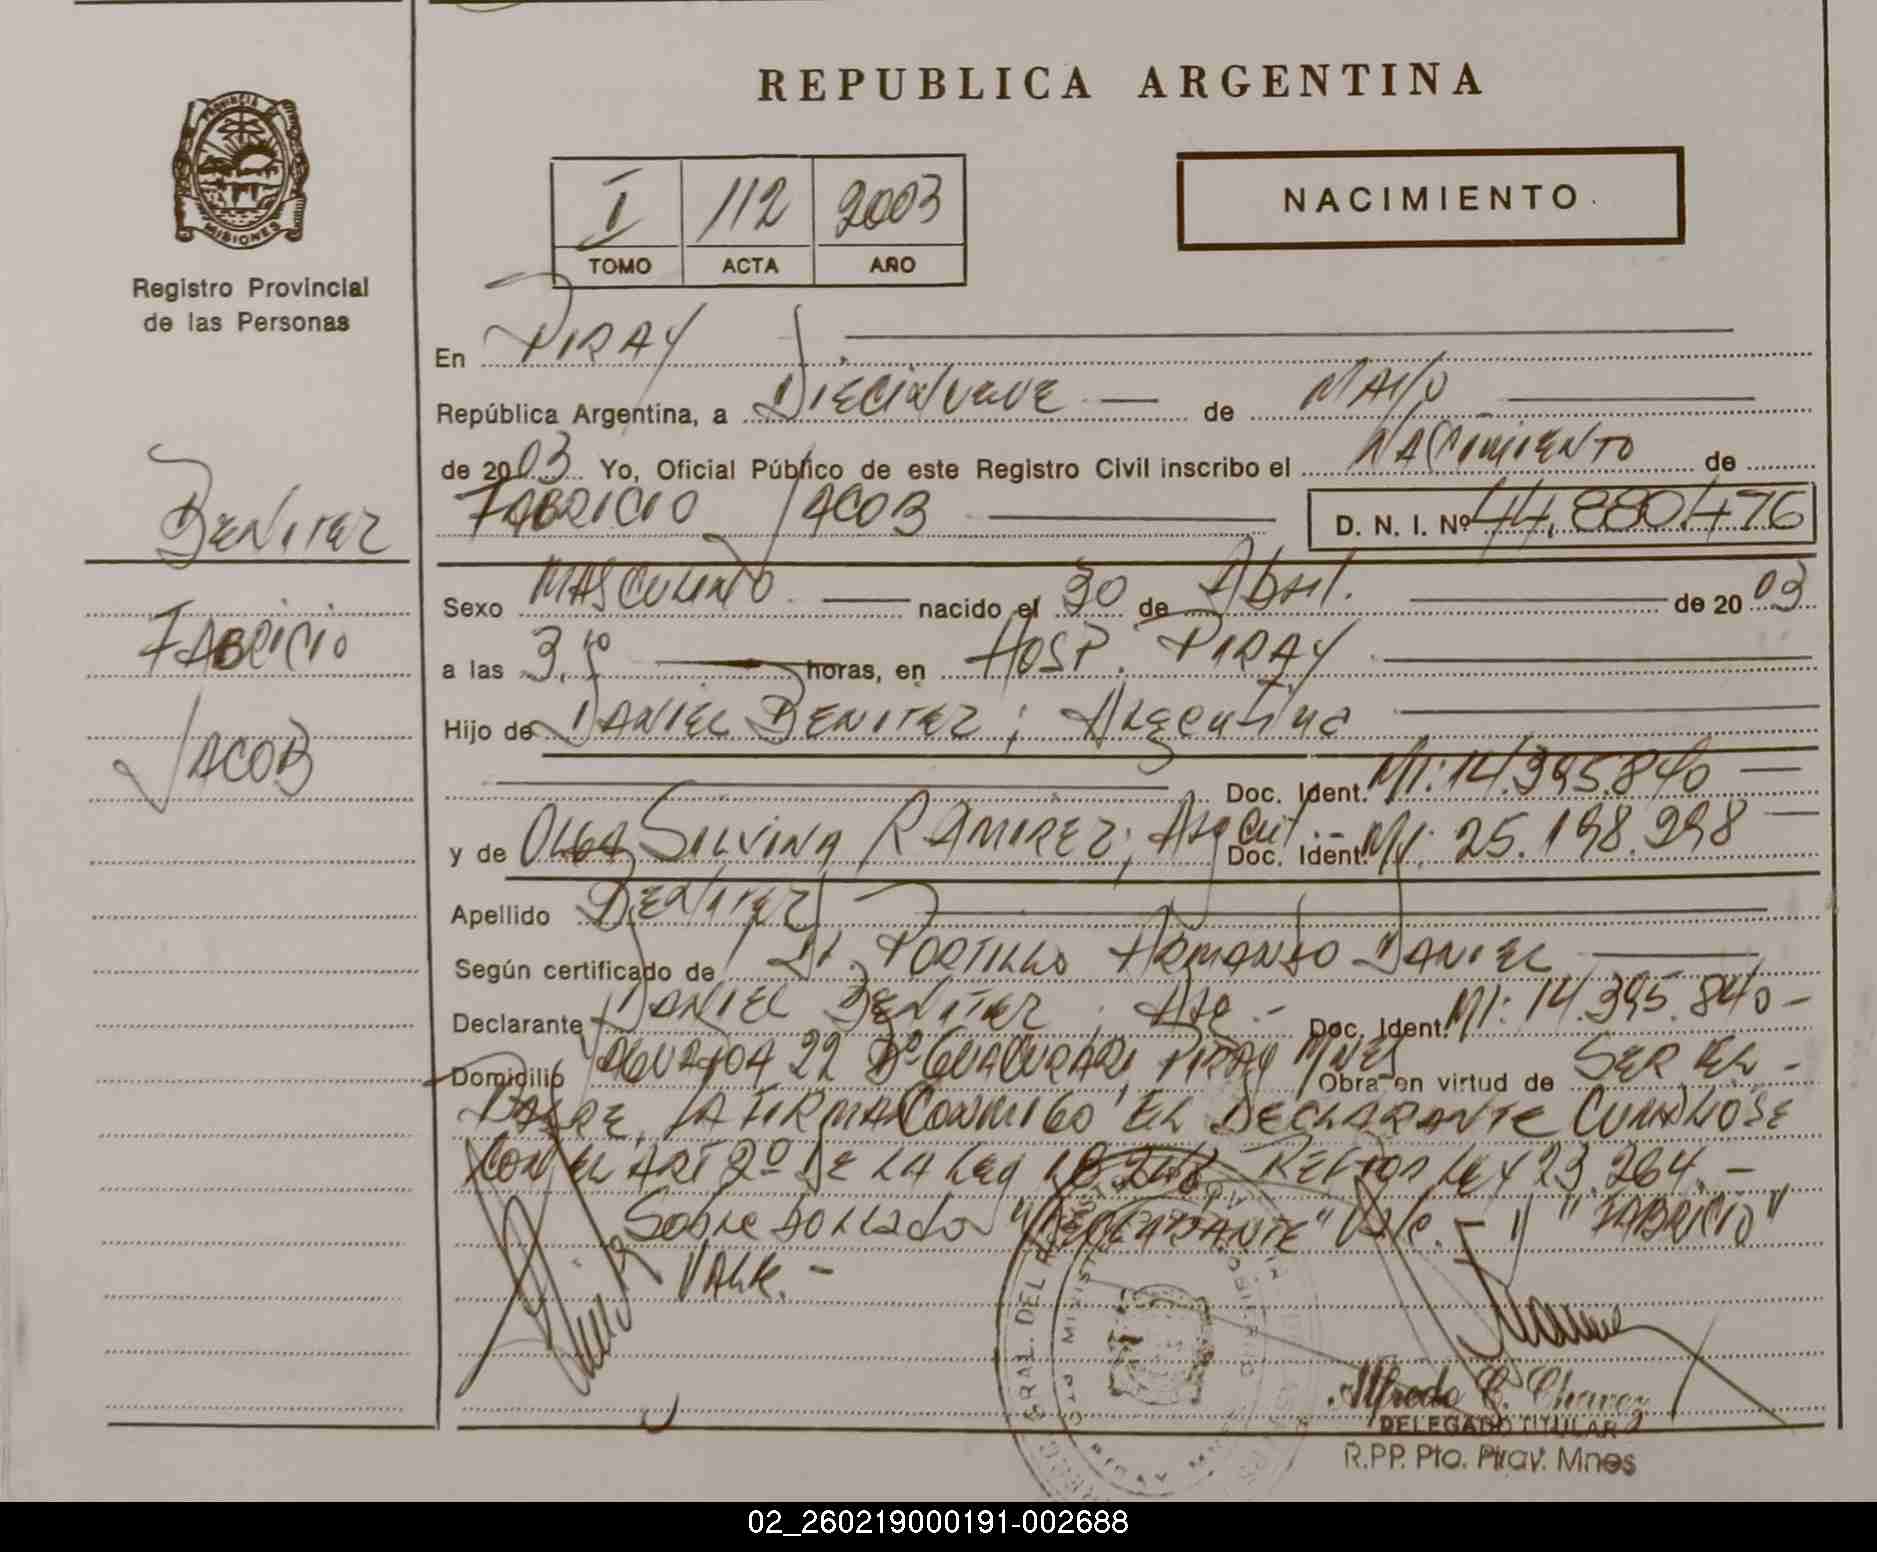 REPUBLICA ARGENTINA
PROVINCIA DE
MISIONES
Registro Provincial
de las Personas
I 112 2003
TOMO ACTA AÑO
NACIMIENTO
BENITEZ
FABRICIO
JACOB
En PIRAY
República Argentina, a DIECINUEVE de MAYO
de 2003 Yo, Oficial Público de este Registro Civil inscribo el NACIMIENTO de
FABRICIO JACOB D. N. I. Nº 44.880.476
Sexo MASCULINO nacido el 30 de Abril. de 2003
a las 3, horas, en HOSP. PIRAY
Hijo de DANIEL BENITEZ; Argentina
Doc. Ident. MI: 14.395.840
y de OLGA SILVINA RAMIREZ; Argent.- Doc. Ident. MI: 25.198.298
Apellido BENITEZ
Según certificado de Dr. PORTILLO ARMANDO DANIEL
Declarante DANIEL BENITEZ; Arg.- Doc. Ident. MI: 14.395.840-
Domicilio 22 Bº GUACURARI, PIRAY MNES Obra en virtud de SER EL-
PADRE, LA FIRMA CONMIGO EL DECLARANTE
CON EL ART 2º DE LA LEY 18.248, LEY 23.264.-
Sobre borrado "DECLARANTE" Vale.- "FABRICIO"
VALE.-
Alfredo C. Chavez
DELEGADO TITULAR
R.P.P. Pto. Piray. Mnes
02_260219000191-002688